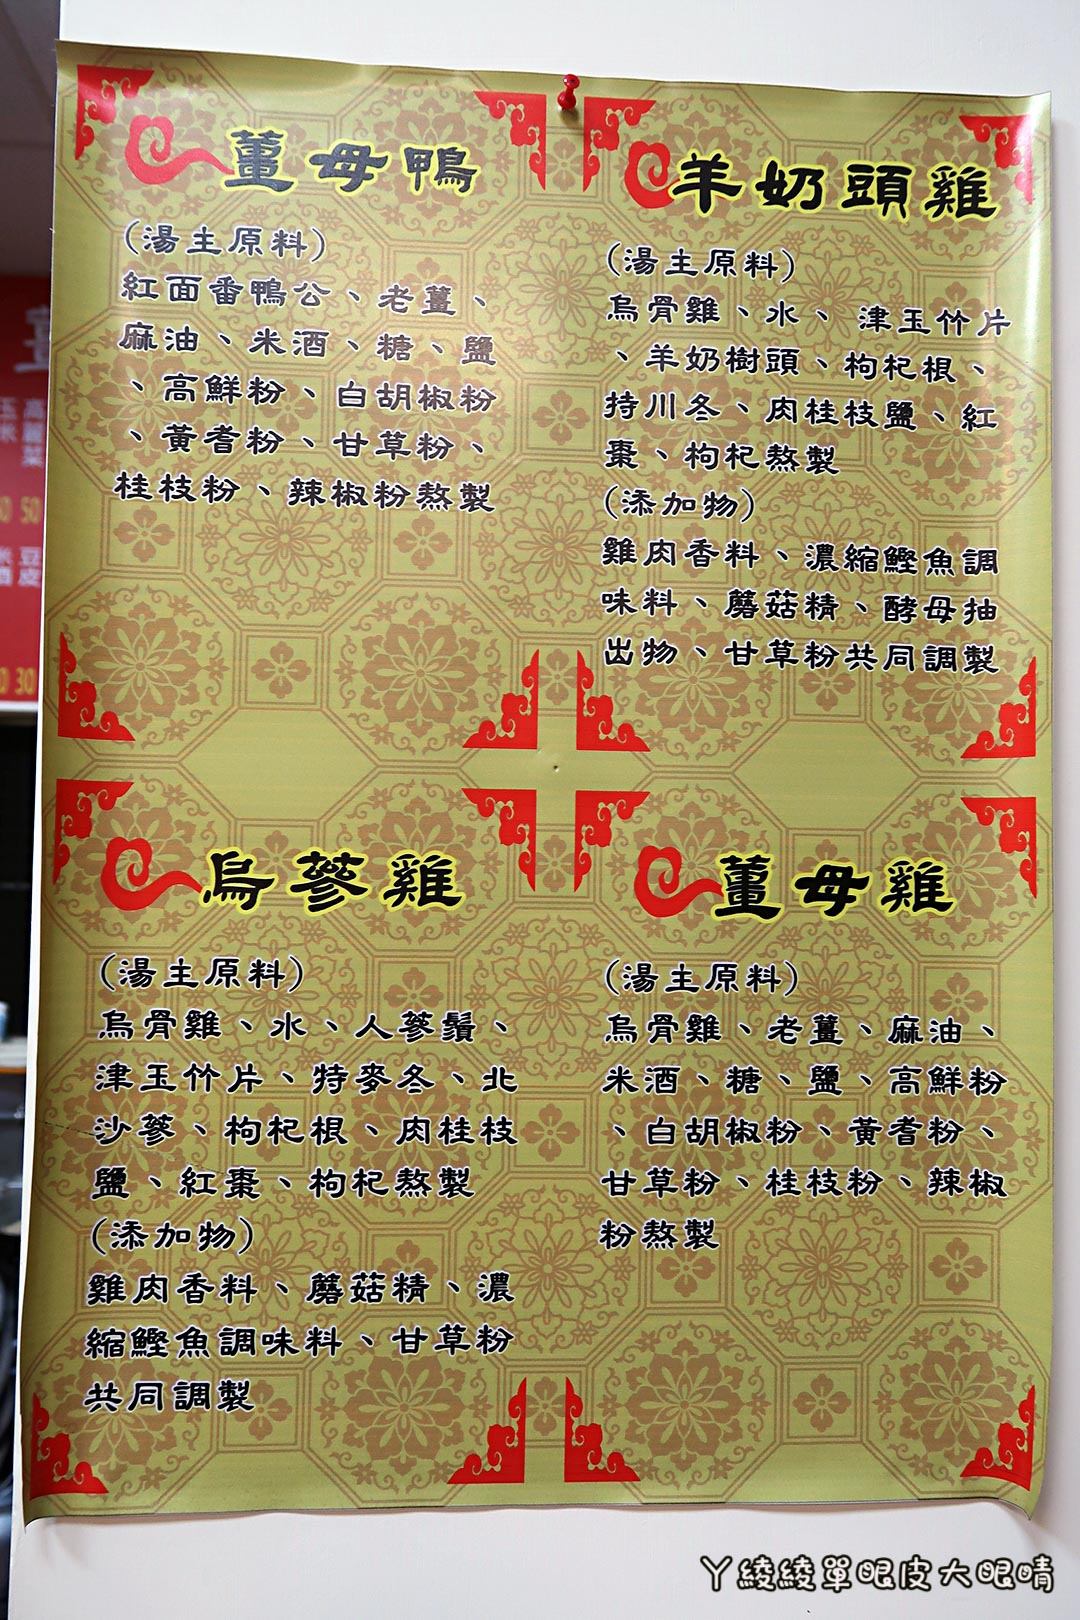 薑母鴨
(湯主原料)
紅面番鴨公、老薑、
麻油、米酒、糖、鹽
、高鮮粉、白胡椒粉
、黃耆粉、甘草粉、
桂枝粉、辣椒粉熬製
羊奶頭雞
(湯主原料)
烏骨雞、水、津玉竹片
、羊奶樹頭、枸杞根、
持川冬、肉桂枝鹽、紅
棗、枸杞熬製
(添加物)
雞肉香料、濃縮鰹魚調
味料、蘑菇精、酵母抽
出物、甘草粉共同調製
烏蔘雞
(湯主原料)
烏骨雞、水、人蔘鬚、
津玉竹片、特麥冬、北
沙蔘、枸杞根、肉桂枝
鹽、紅棗、枸杞熬製
(添加物)
雞肉香料、蘑菇精、濃
縮鰹魚調味料、甘草粉
共同調製
薑母雞
(湯主原料)
烏骨雞、老薑、麻油、
米酒、糖、鹽、高鮮粉
、白胡椒粉、黃耆粉、
甘草粉、桂枝粉、辣椒
粉熬製
高麗菜
玉米
50
豆皮
30
ㄚ綾綾單眼皮大眼睛